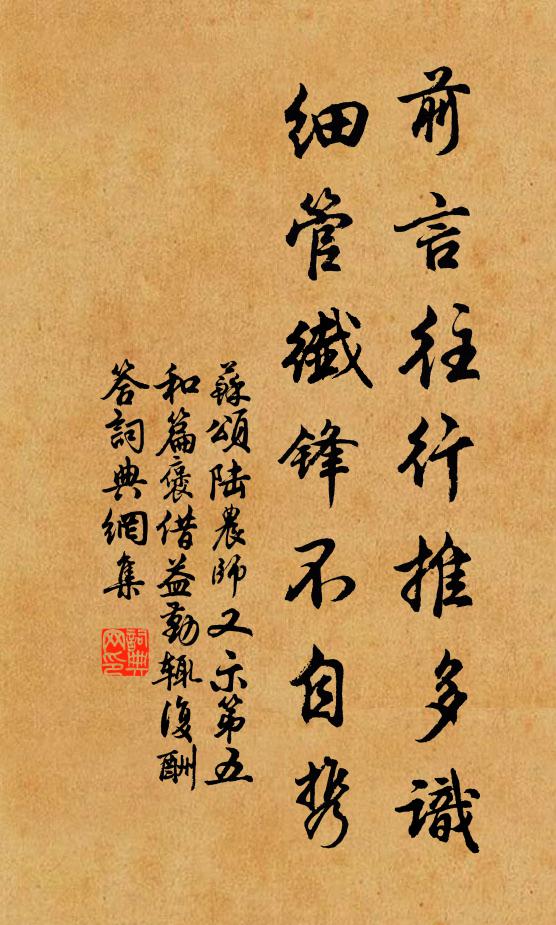 前言往行推多識
細管纖鋒不自携
蘇頌陸農師又示第五
和篇褒借益勤輒復酬
答詞典網集
詞典网印